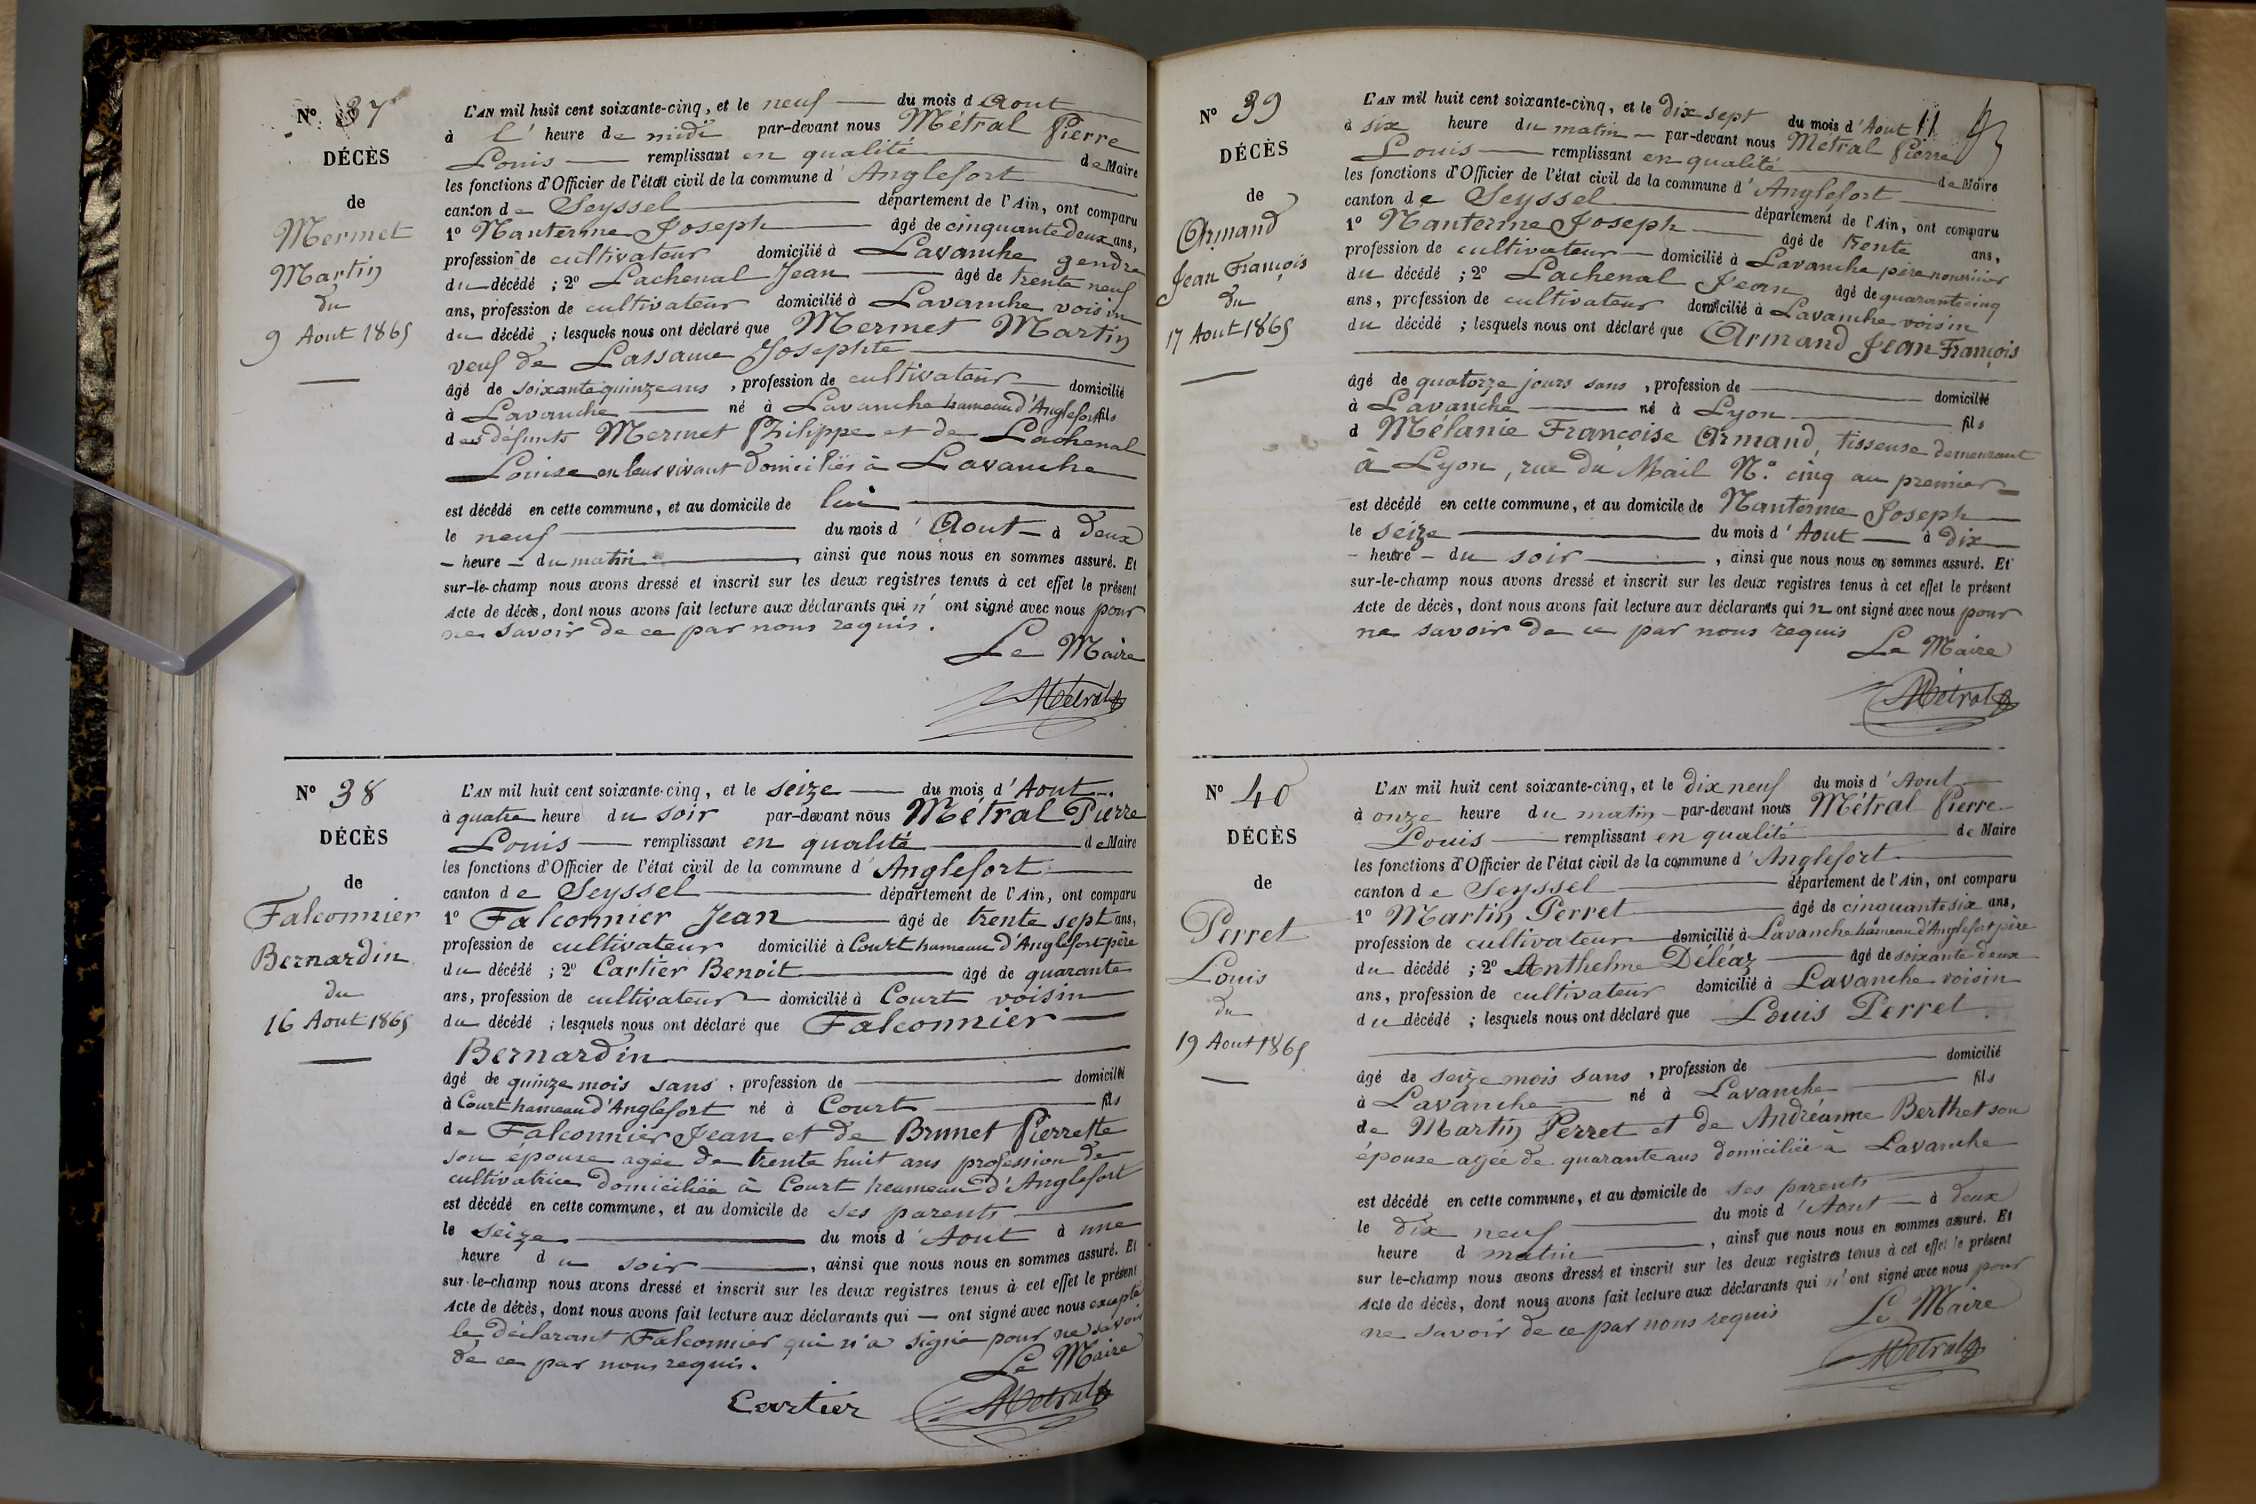 N° 37
DÉCÈS
de
Mermet
Martin
du
9 Aout 1865
L'AN mil huit cent soixante-cinq, et le neuf du mois d'Aout
à l' heure de midi par-devant nous Métral Pierre
Louis remplissant en qualité de Maire
les fonctions d'Officier de l'état civil de la commune d'Anglefort
canton de Seyssel département de l'Ain, ont comparu
1° Nanterme Joseph âgé de cinquante deux ans,
profession de cultivateur domicilié à Lavanche gendre
du décédé ; 2° Lachenal Jean âgé de trente neuf
ans, profession de cultivateur domicilié à Lavanche voisin
du décédé ; lesquels nous ont déclaré que Mermet Martin
veuf de Lassaue Josephte
âgé de soixante quinze ans, profession de cultivateur domicilié
à Lavanche né à Lavanche hameau d'Anglefort fils
des défunts Mermet Philippe et de Lachenal
Louise en leur vivant domiciliés à Lavanche
est décédé en cette commune, et au domicile de lui
le neuf du mois d'Aout à deux
heure du matin, ainsi que nous nous en sommes assuré. Et
sur-le-champ nous avons dressé et inscrit sur les deux registres tenus à cet effet le présent
Acte de décès, dont nous avons fait lecture aux déclarants qui n' ont signé avec nous pour
ne savoir de ce par nous requis.
Le Maire
Métral
N° 38
DÉCÈS
de
Falconnier
Bernardin
du
16 Aout 1865
L'AN mil huit cent soixante-cinq, et le seize du mois d'Aout
à quatre heure du soir par-devant nous Métral Pierre
Louis remplissant en qualité de Maire
les fonctions d'Officier de l'état civil de la commune d'Anglefort
canton de Seyssel département de l'Ain, ont comparu
1° Falconnier Jean âgé de trente sept ans,
profession de cultivateur domicilié à Court hameau d'Anglefort père
du décédé ; 2° Cartier Benoit âgé de quarante
ans, profession de cultivateur domicilié à Court voisin
du décédé ; lesquels nous ont déclaré que Falconnier
Bernardin
âgé de quinze mois sans, profession de domicilié
à Court hameau d'Anglefort né à Court fils
de Falconnier Jean et de Brunet Pierrette
son épouse agée de trente huit ans profession de
cultivatrice domiciliée à Court heameau d'Anglefort
est décédé en cette commune, et au domicile de ses parents
le seize du mois d'Aout à une
heure du soir, ainsi que nous nous en sommes assuré. Et
sur-le-champ nous avons dressé et inscrit sur les deux registres tenus à cet effet le présent
Acte de décès, dont nous avons fait lecture aux déclarants qui — ont signé avec nous excepté
le déclarant Falconnier qui n'a signé pour ne savoir
de ce par nous requis.
Le Maire
Cartier Métral
N° 39
DÉCÈS
de
Armand
Jean François
du
17 Aout 1865
L'AN mil huit cent soixante-cinq, et le dix sept du mois d'Aout
à six heure du matin par-devant nous Métral Pierre
Louis remplissant en qualité de Maire
les fonctions d'Officier de l'état civil de la commune d'Anglefort
canton de Seyssel département de l'Ain, ont comparu
1° Nanterme Joseph âgé de trente ans,
profession de cultivateur domicilié à Lavanche père nourricier
du décédé ; 2° Lachenal Jean âgé de quarante cinq
ans, profession de cultivateur domicilié à Lavanche voisin
du décédé ; lesquels nous ont déclaré que Armand Jean François
âgé de quatorze jours sans, profession de domicilié
à Lavanche né à Lyon fils
d Mélanie Françoise Armand, tisseuse demeurant
à Lyon, rue du Mail N° cinq au premier
est décédé en cette commune, et au domicile de Nanterme Joseph
le seize du mois d'Aout à dix
heure du soir, ainsi que nous nous en sommes assuré. Et
sur-le-champ nous avons dressé et inscrit sur les deux registres tenus à cet effet le présent
Acte de décès, dont nous avons fait lecture aux déclarants qui n ont signé avec nous pour
ne savoir de ce par nous requis
Le Maire
Métral
N° 40
DÉCÈS
de
Perret
Louis
du
19 Aout 1865
L'AN mil huit cent soixante-cinq, et le dix neuf du mois d'Aout
à onze heure du matin par-devant nous Métral Pierre
Louis remplissant en qualité de Maire
les fonctions d'Officier de l'état civil de la commune d'Anglefort
canton de Seyssel département de l'Ain, ont comparu
1° Martin Perret âgé de cinquante six ans,
profession de cultivateur domicilié à Lavanche hameau d'Anglefort père
du décédé ; 2° Anthelme Déléaz âgé de soixante deux
ans, profession de cultivateur domicilié à Lavanche voisin
du décédé ; lesquels nous ont déclaré que Louis Perret
âgé de seize mois sans, profession de domicilié
à Lavanche né à Lavanche fils
de Martin Perret et de Andréanne Berthet son
épouse agée de quarante ans domiciliée à Lavanche
est décédé en cette commune, et au domicile de ses parents
le dix neuf du mois d'Aout à deux
heure d matin, ainsi que nous nous en sommes assuré. Et
sur le-champ nous avons dressé et inscrit sur les deux registres tenus à cet effet le présent
Acte de décès, dont nous avons fait lecture aux déclarants qui n' ont signé avec nous pour
ne savoir de ce par nous requis
Le Maire
Métral